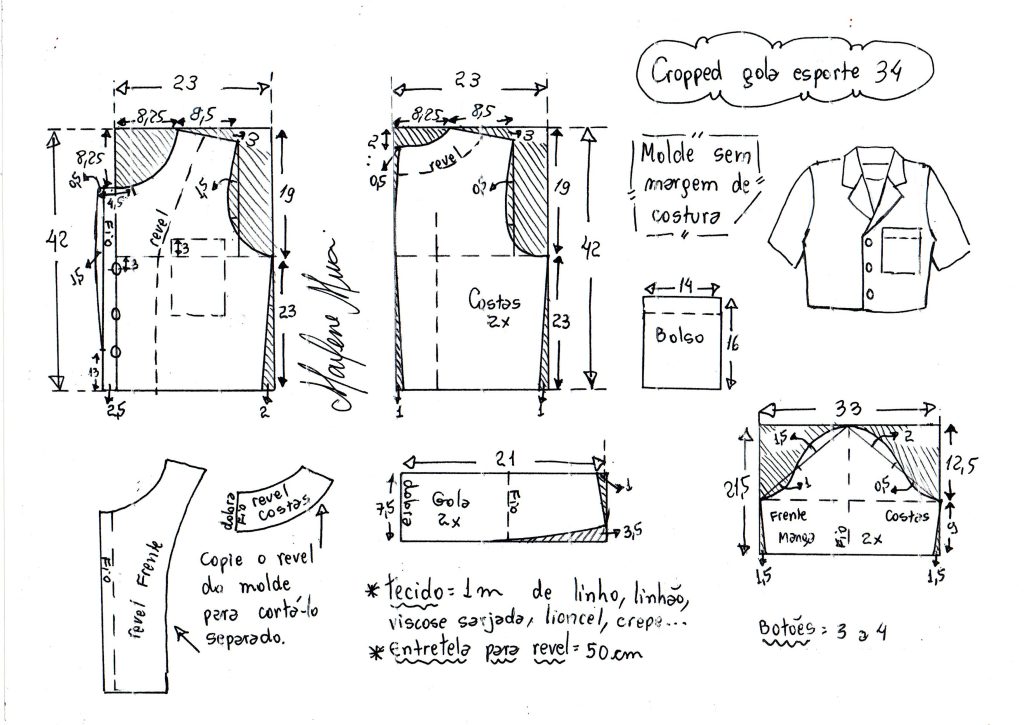 Cropped gola esporte 34
23
8,25
8,5
3
8,25
0,5
4,5
1
1,5
Fio
revel
19
42
3
3
1,5
23
13
2,5
2
Marlene Mukai
23
8,25
8,5
2
3
revel
0,5
0,5
19
42
Costas
2x
23
1
1
Molde sem
margem de
costura
14
Bolso
16
21
dobra
7,5
Gola
2x
Fio
1
3,5
33
1,5
2
12,5
21,5
1
0,5
Frente
Costas
Manga
Fio
2x
9
1,5
1,5
Fio
revel Frente
dobra
Fio
revel
costas
Copie o revel
do molde
para cortá-lo
separado.
* Tecido = 1m de linho, linhão,
viscose sarjada, lioncel, crepe...
* Entretela para revel = 50cm
Botões = 3 a 4